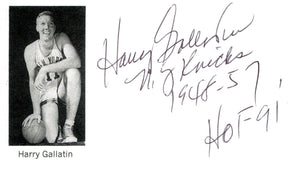 Harry Gallatin
N.Y. Knicks
1948-57
HOF-91
Harry Gallatin